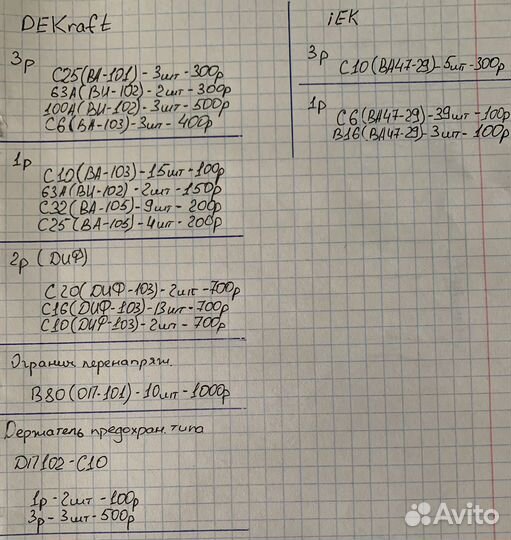 DEKraft
3р
C25(ВА-101)-3шт-300р
63А(ВН-102)-2шт-300р
100А(ВН-102)-3шт-500р
C6(ВА-103)-3шт-400р
1р
C10(ВА-103)-15шт-100р
63А(ВН-102)-2шт-150р
C32(ВА-105)-9шт-200р
C25(ВА-105)-4шт-200р
2р (ДИФ)
C20(ДИФ-103)-2шт-700р
C16(ДИФ-103)-13шт-700р
C10(ДИФ-103)-2шт-700р
Огранич перенапряж.
B80(ОП-101)-10шт-1000р
Держатель предохран. типа
ДП102-C10
1р-2шт-100р
3р-3шт-500р
iEK
3р
C10(ВА47-29)-5шт-300р
1р
C6(ВА47-29)-39шт-100р
B16(ВА47-29)-3шт-100р
Avito